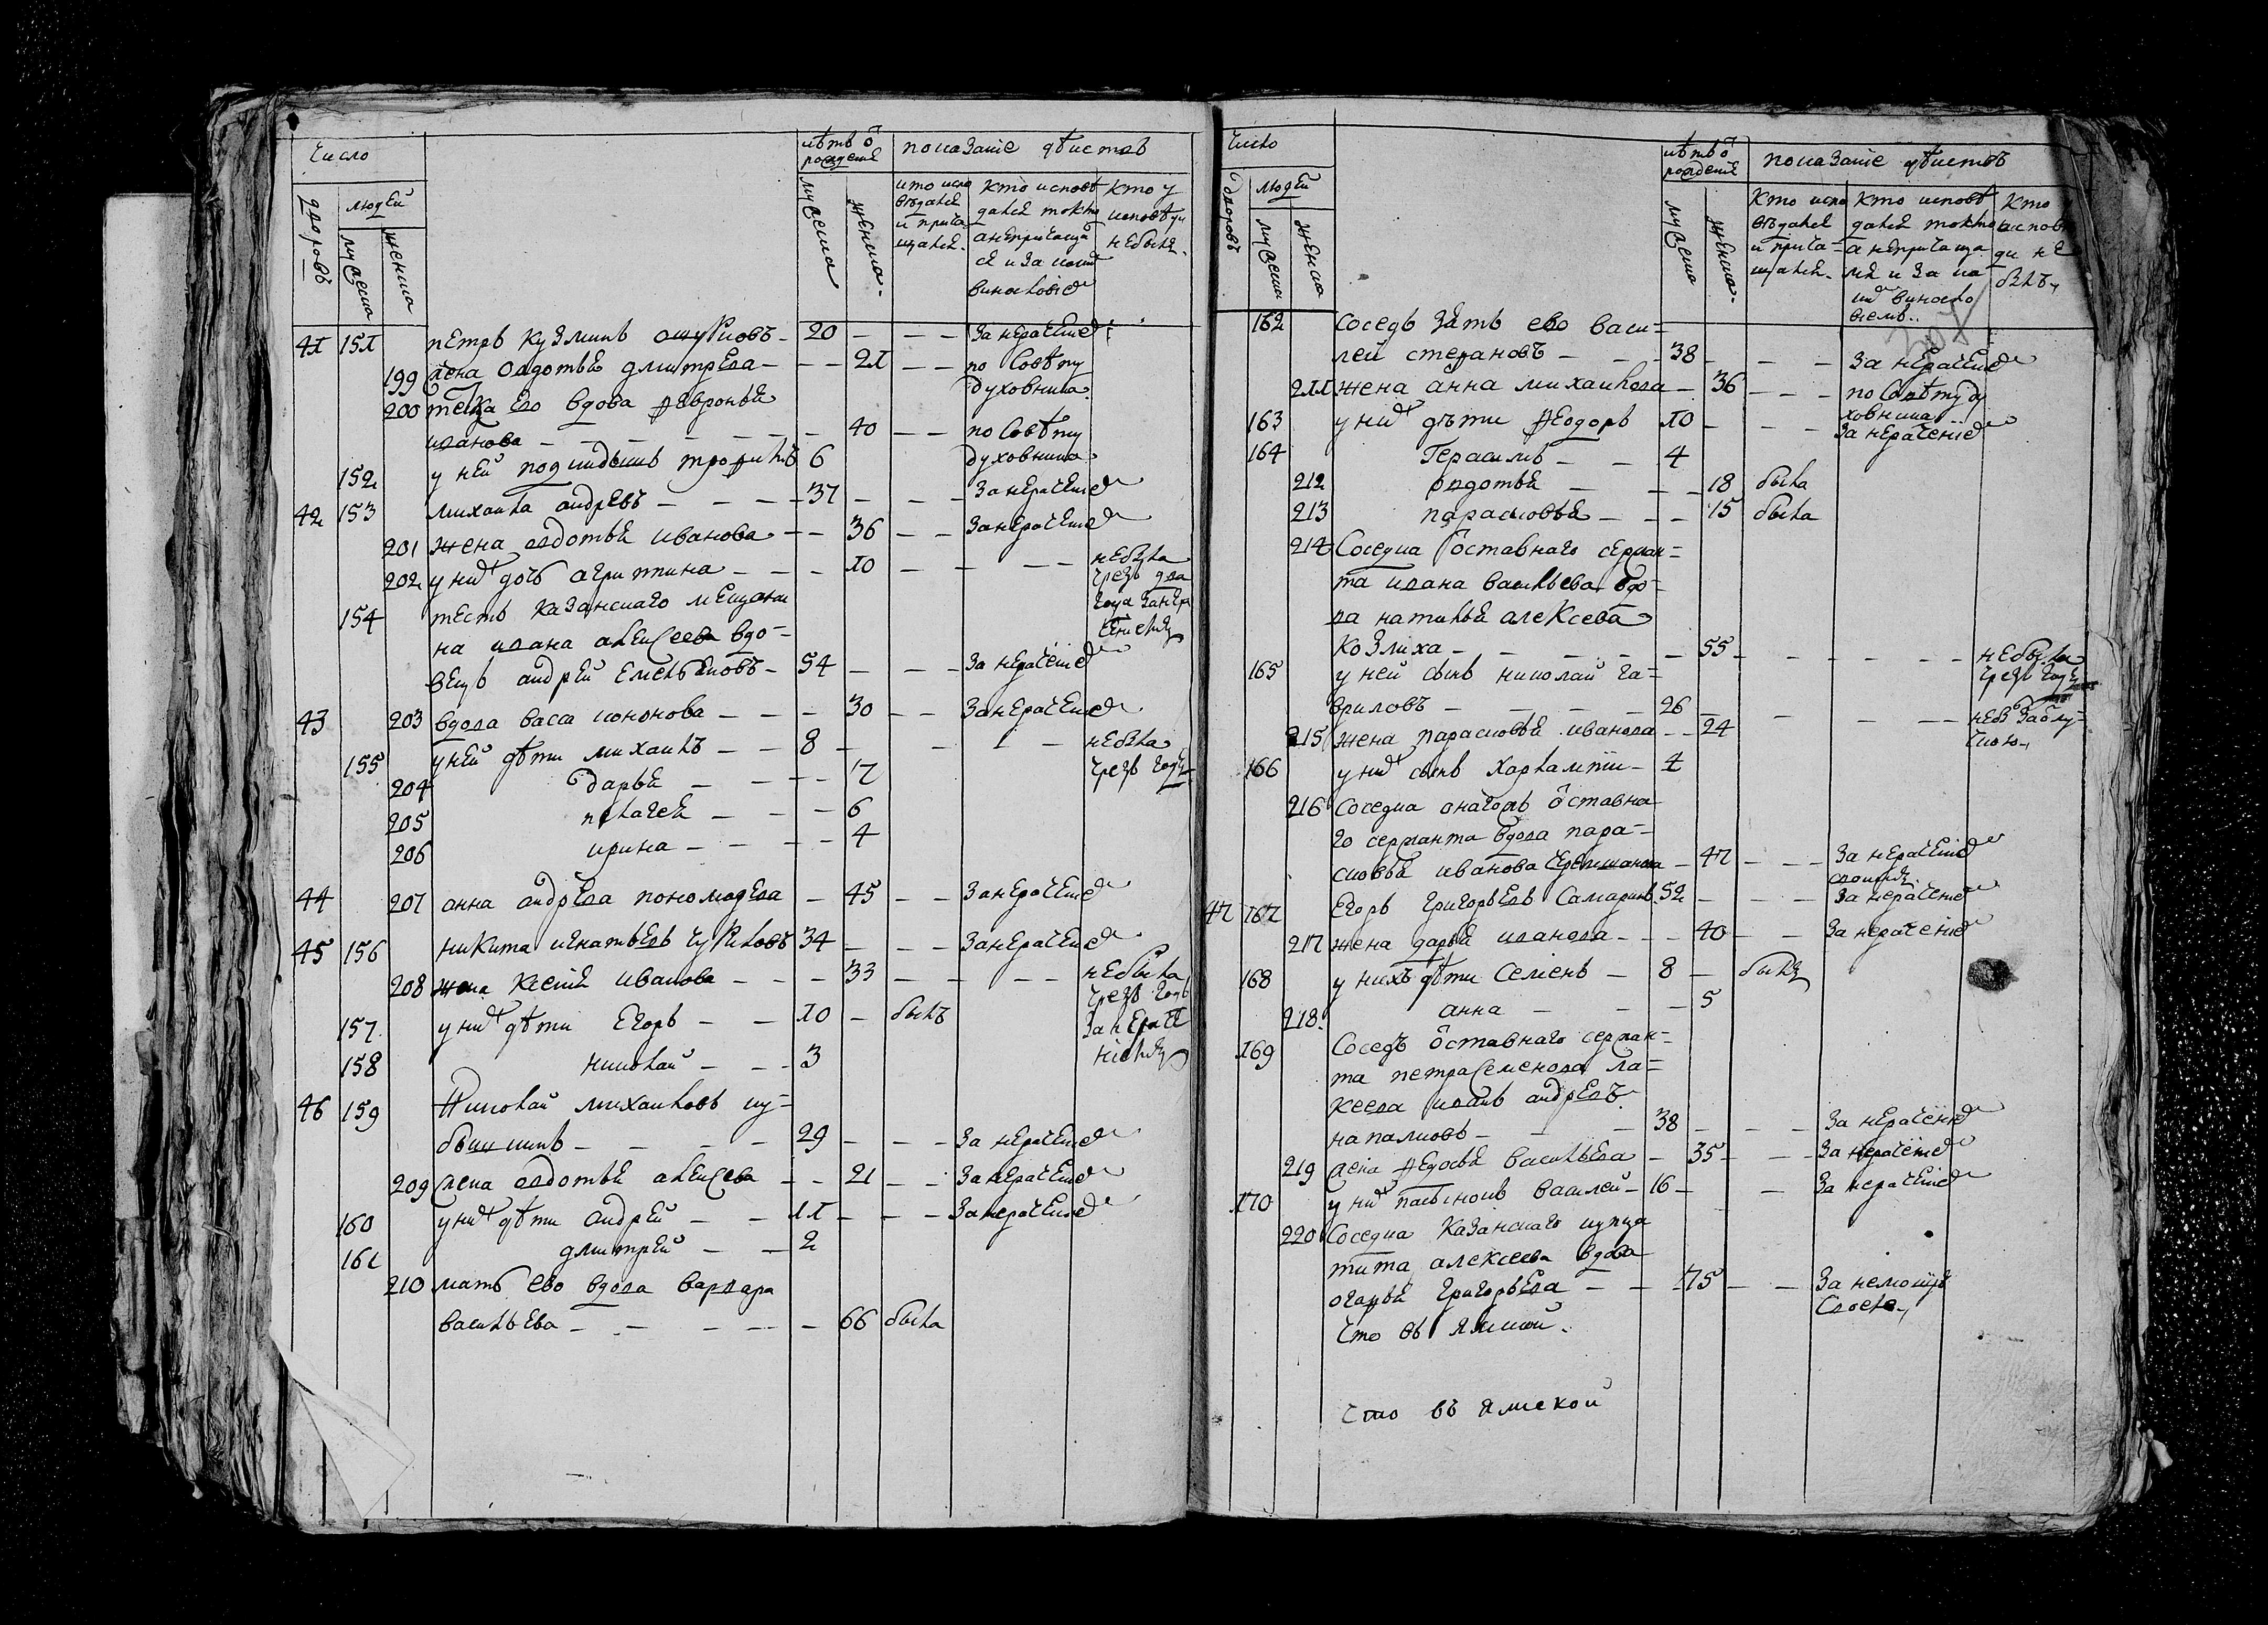 Число
людей
дворовъ
мужеска
женска
лѣтъ ѿ рождения
мужеска
женска
показание дѣиствъ
кто испо
вѣдался
и прича
щался
кто исповѣ
дался токмо
а непричаща
ся и за какимъ
винословiемъ
кто у
исповѣди
небылъ
41 151 петръ кузминъ 20 — — — за нерачениемъ
199 жена овдотья дмитрева — — — 21 — — по совѣту
духовника
200 теща ево вдова февронья
иванова — — — 40 — — по совѣту
духовника
152 у ней подкидышь трофимъ 6
42 153 михаила андревъ — — — 37 — — — за нерачениемъ
201 жена авдотья иванова — — 36 — — за нерачениемъ
202 у нихъ дочь агрипина — — — 10 — — — — небыла
чрезъ два
года занера
чениемъ
154 тесть казанскаго мещани
на ивана алексеева вдо-
вецъ андрей емельяновъ — 54 — — — за нерачениемъ
43 203 вдова васса кононова — — — 30 — — за нерачениемъ
155 у ней дѣти михаилъ — — 8 — — — — небыла
чрезъ годъ
204 дарья — — — — 7
205 пелагея — — — 6
206 ирина — — — — 4
44 207 анна андрева пономарева — 45 — — за нерачениемъ
45 156 никита игнатьевъ 34 — — — за нерачениемъ
208 жена ксения иванова — — — 33 — — — — небыла
чрезъ годъ
за нераче
ниемъ
157 у нихъ дѣти егоръ — — 10 — былъ
158 николай — — — 3
46 159 николай михаиловъ ку-
— — — — 29 — — — за нерачениемъ
209 жена авдотья алексева — — 21 — — за нерачениемъ
160 у нихъ дѣти андрей — — 11 — — — за нерачениемъ
161 дмитрей — — 2
210 мать ево вдова варвара
васильева — — — — — 66 была
Число
людей
дворовъ
мужеска
женска
лѣтъ ѿ рождения
мужеска
женска
показание дѣиствъ
кто испо
вѣдался
и прича-
щался
кто исповѣ
дался токмо
а непричаща
лся и за ка-
кимъ виносло
виемъ
кто
исповѣ
ди не
былъ
162 соседъ зять ево васи-
лей степановъ — — — 38 — — — за нерачениемъ
211 жена анна михаилова — 36 — — — по совѣту ду
ховника
163 у нихъ дѣти феодоръ 10 — — — за нерачениемъ
164 герасимъ — — 4
212 овдотья — — — 18 была
213 парасковья — — — 15 была
214 соседка ѿставнаго сержан-
та ивана васильева вдо-
ва наталья алексева
козлиха — — — — — 55 — — — — — небыла
чрезъ годъ
165 у ней сынъ николай га-
вриловъ — — — — 26 — — — — —
215 жена парасковья иванова — — 24
166 у нихъ сынъ харлампи — 4
216 соседка онагожъ ѿставна
го сержанта вдова пара-
сковья иванова — 47 — — — за нерачениемъ
своимъ
47 167 егоръ григорьевъ самаринъ 52 — — — за нерачениемъ
217 жена дарья иванова — — — 40 — — за нерачениемъ
168 у нихъ дѣти семенъ — 8 — былъ
218 анна — — — 5
169 соседъ ѿставнаго сержан-
та петра семенова ла-
кеева иванъ андревъ
— — — 38 — — — за нерачениемъ
219 жена федосья васильева — 35 — — за нерачениемъ
170 у нихъ пасынокъ василей — 16 — — за нерачениемъ
220 соседка казанскаго купца
тита алексеева вдова
агафья григорьева — — — 75 — — за немощию
своею
что въ ямской
что въ ямской